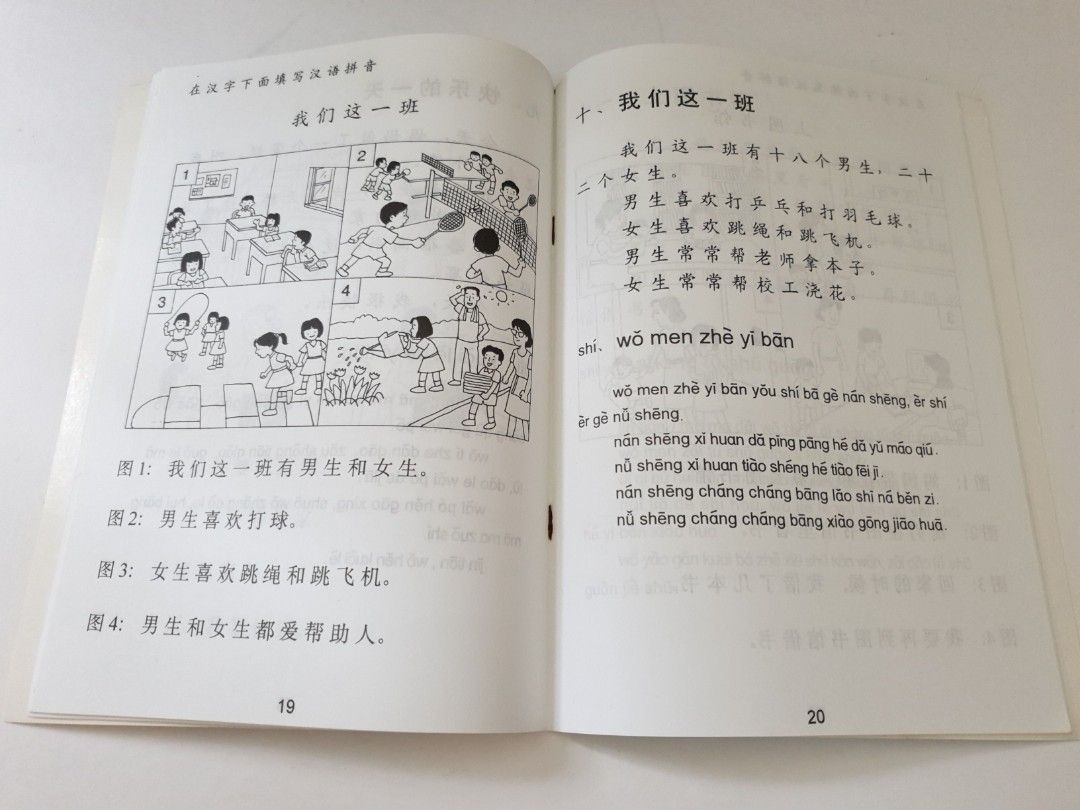 在汉字下面填写汉语拼音
我们这一班
1
2
3
4
图1：我们这一班有男生和女生。
图2：男生喜欢打球。
图3：女生喜欢跳绳和跳飞机。
图4：男生和女生都爱帮助人。
19
十、我们这一班
我们这一班有十八个男生，二十
二个女生。
男生喜欢打乒乓和打羽毛球。
女生喜欢跳绳和跳飞机。
男生常常帮老师拿本子。
女生常常帮校工浇花。
shí、wǒ men zhè yì bān
wǒ men zhè yì bān yǒu shí bā gè nán shēng, èr shí
èr gè nǚ shēng.
nán shēng xǐ huan dǎ pīng pāng hé dǎ yǔ máo qiú.
nǚ shēng xǐ huan tiào shéng hé tiào fēi jī.
nán shēng cháng cháng bāng lǎo shī ná běn zi.
nǚ shēng cháng cháng bāng xiào gōng jiāo huā.
20